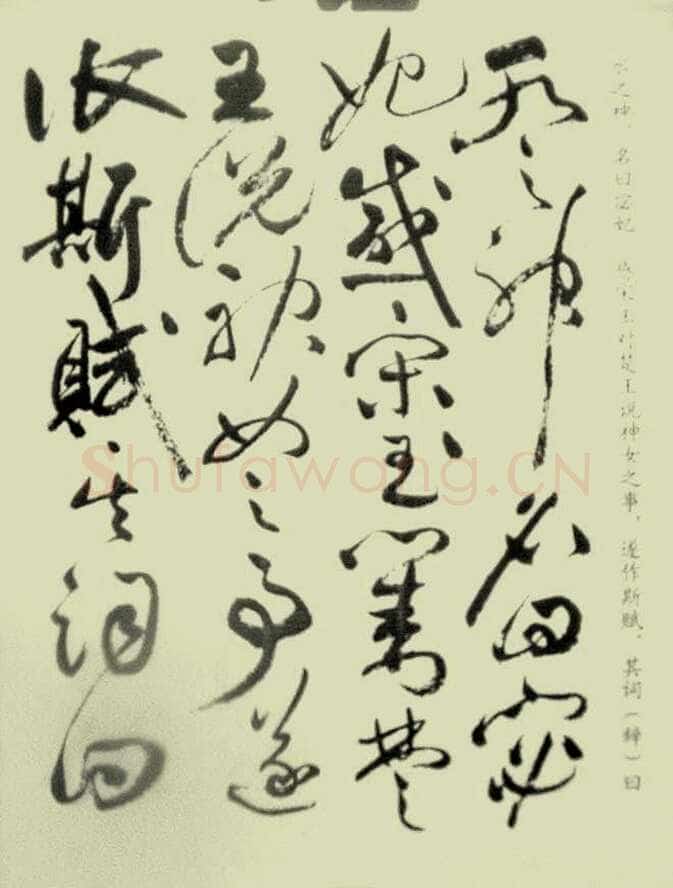 水之神，名曰宓妃 感宋玉对楚王说神女之事，遂作斯赋，其词（辞）曰
水之神名曰宓
妃感宋玉對楚
王説神女之事遂
作斯賦其詞曰
Shufawang.CN